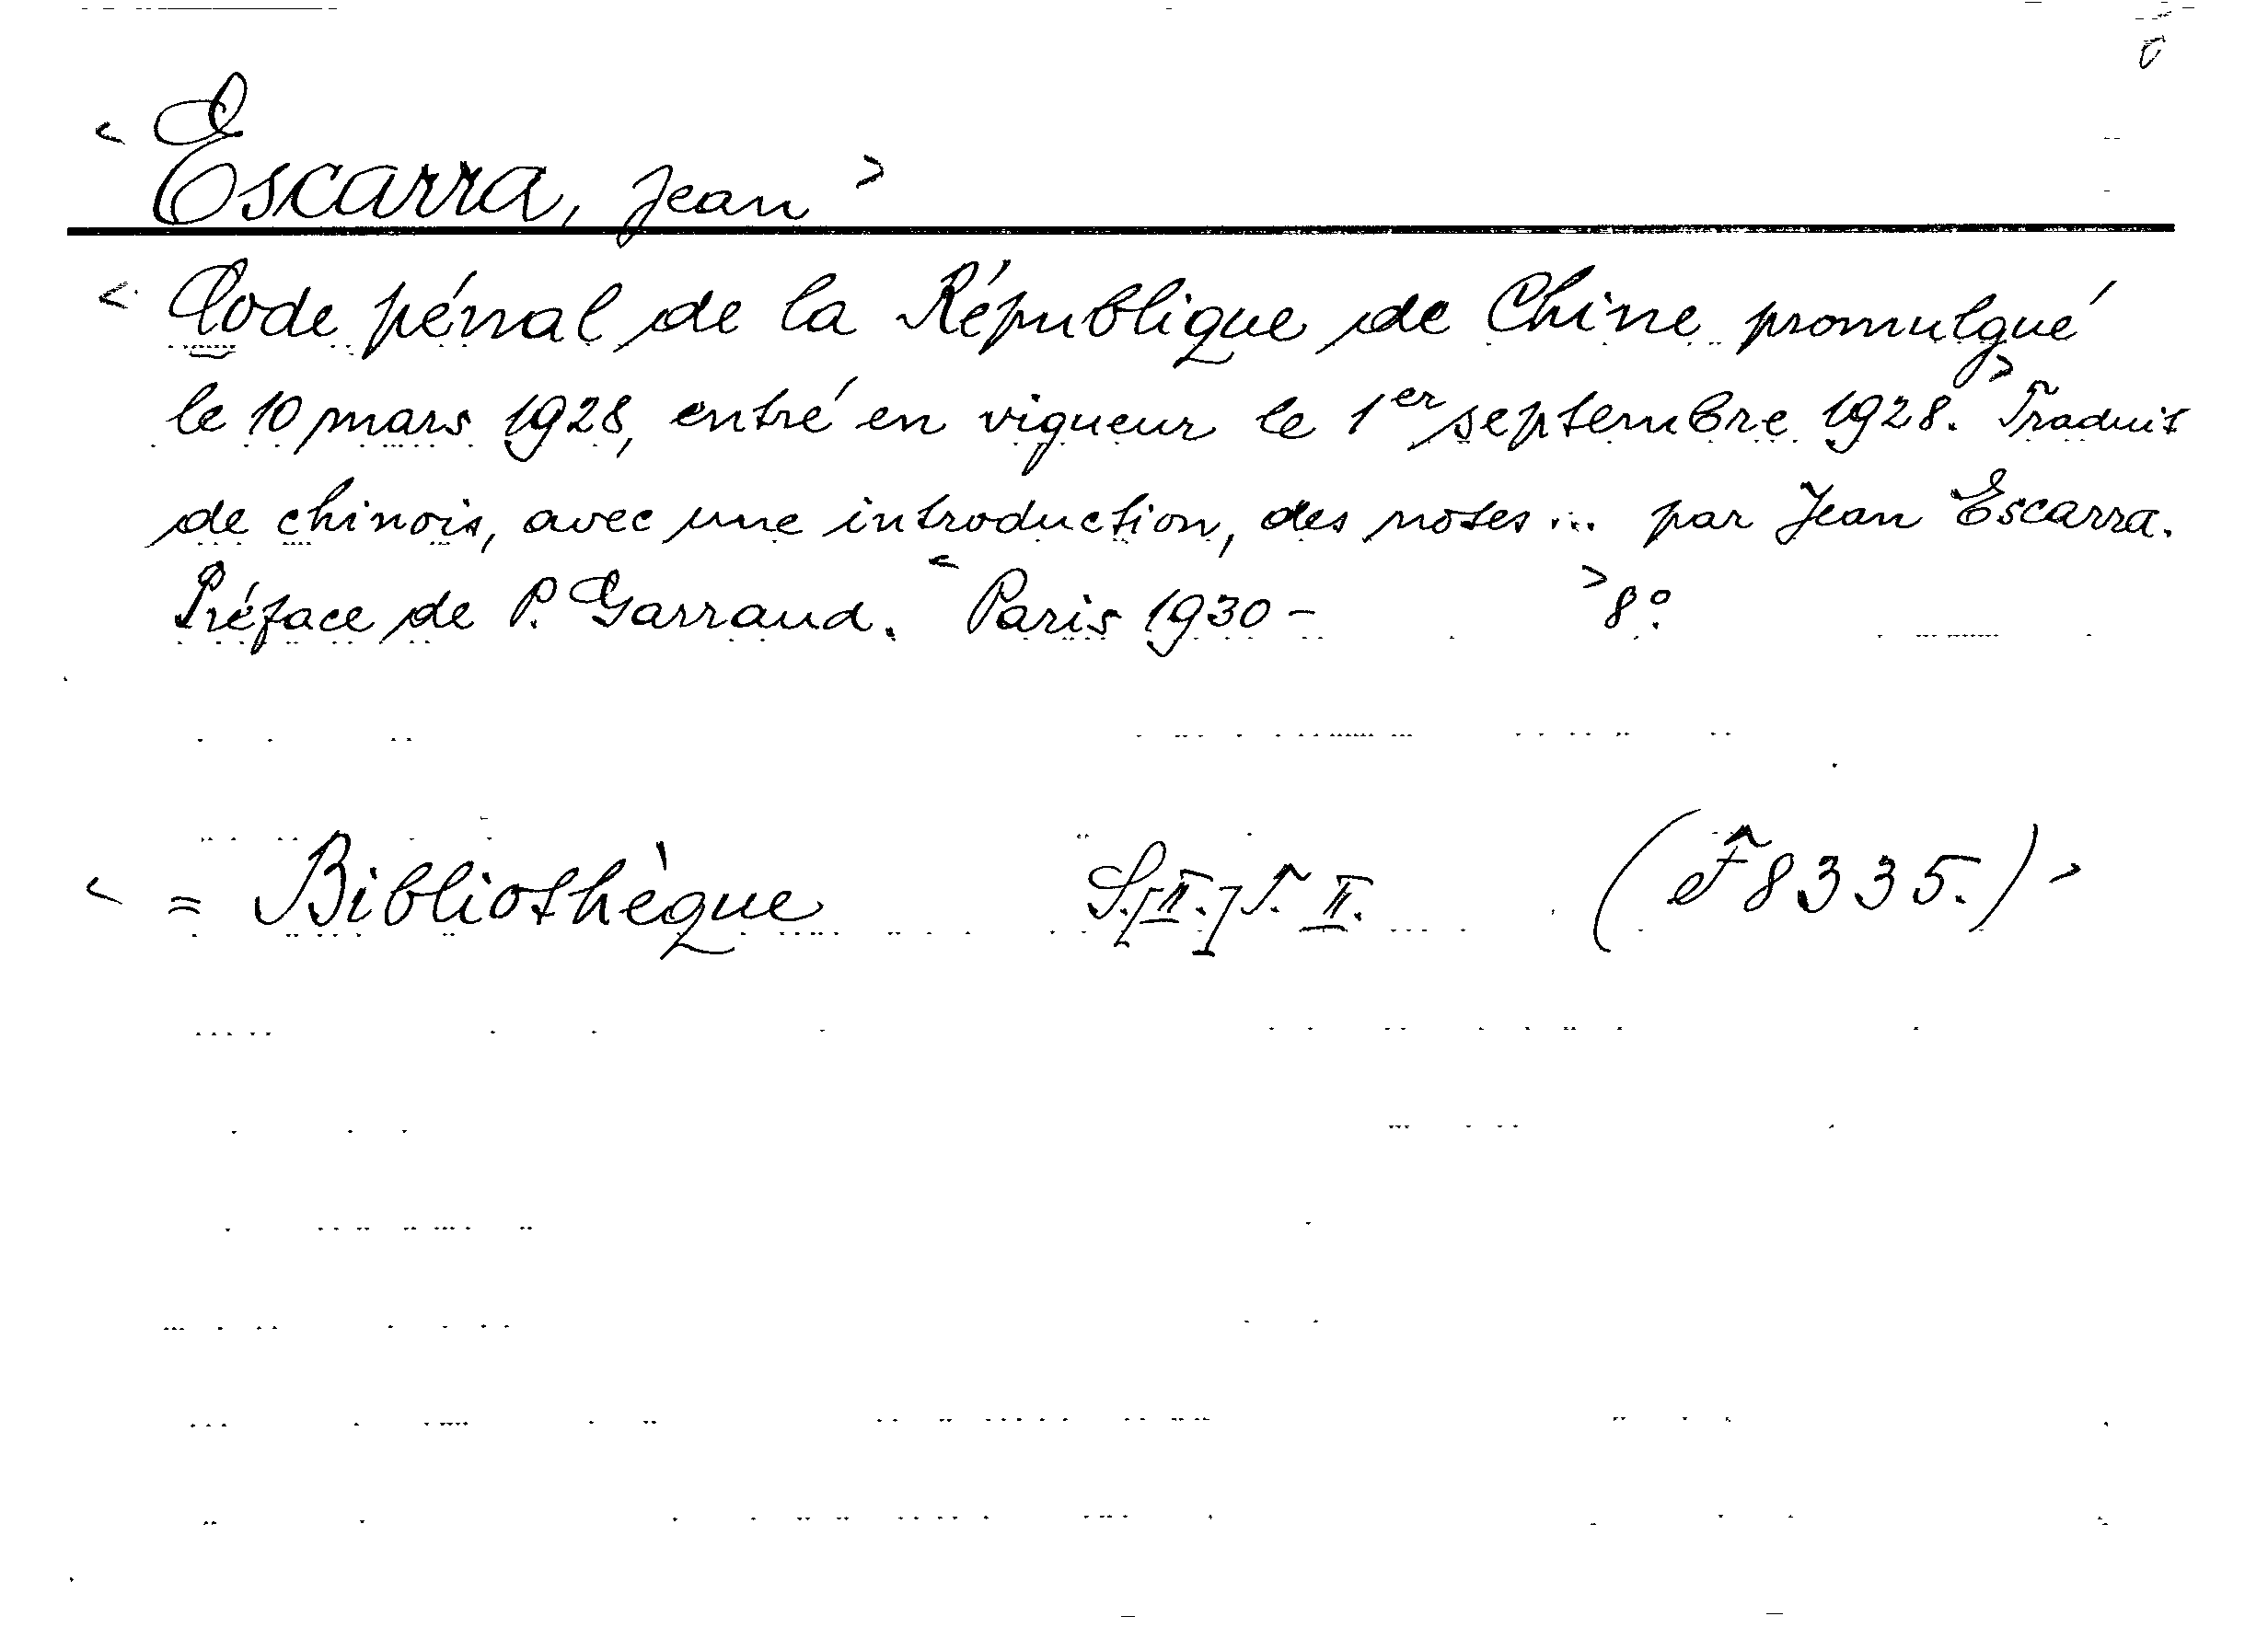 < Escarra, Jean >
< Code pénal de la République de Chine promulgué
le 10 mars 1928, entré en vigueur le 1er septembre 1928. > Traduit
de chinois, avec une introduction, des notes ... par Jean Escarra.
Préface de P. Garraud. < Paris 1930 - > 8°.
< = Bibliothèque S.[II.] T. II. (F 8335.) >